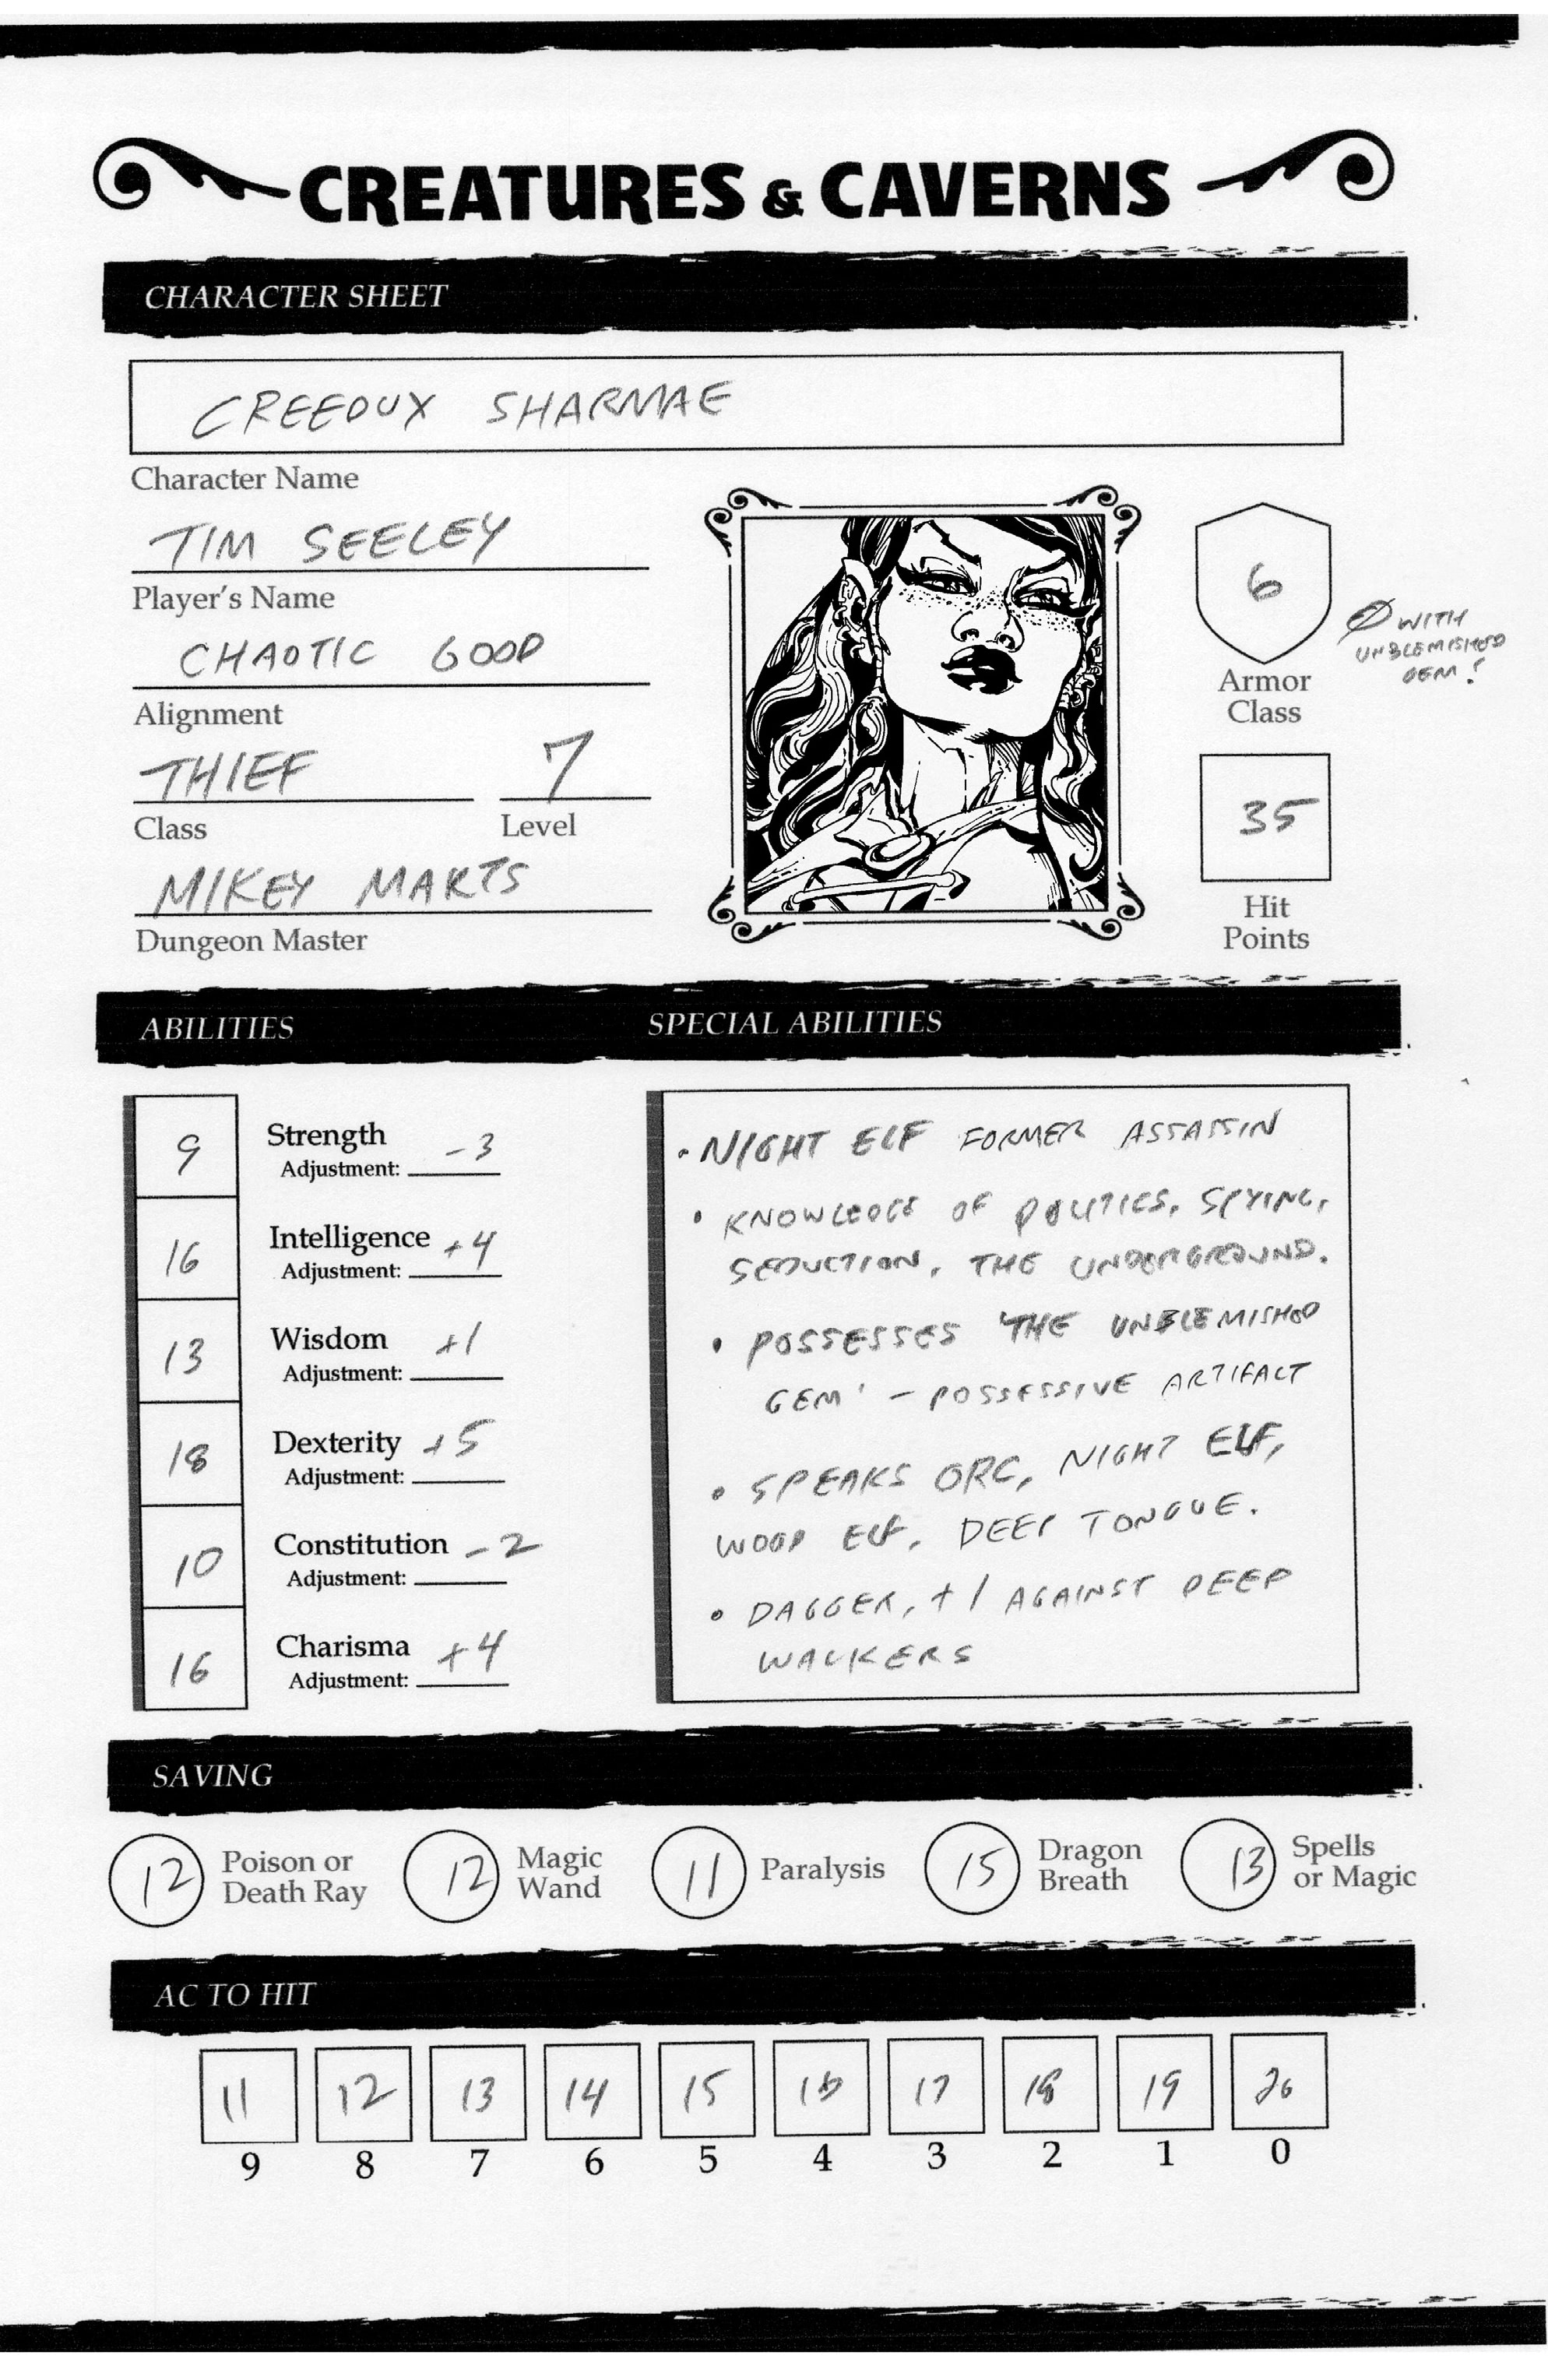 CREATURES & CAVERNS
CHARACTER SHEET
CREEDUX SHARMAE
Character Name
TIM SEELEY
Player's Name
CHAOTIC GOOD
Alignment
THIEF 7
Class Level
MIKEY MARTS
Dungeon Master
6
Armor
Class
Ø WITH
UNBLEMISHED
GEM!
35
Hit
Points
ABILITIES
9 Strength -3
Adjustment:
16 Intelligence +4
Adjustment:
13 Wisdom +1
Adjustment:
18 Dexterity +5
Adjustment:
10 Constitution -2
Adjustment:
16 Charisma +4
Adjustment:
SPECIAL ABILITIES
• NIGHT ELF FORMER ASSASSIN
• KNOWLEDGE OF POLITICS, SPYING,
SEDUCTION, THE UNDERGROUND.
• POSSESSES 'THE UNBLEMISHED
GEM' - POSSESSIVE ARTIFACT
• SPEAKS ORC, NIGHT ELF,
WOOD ELF, DEEP TONGUE.
• DAGGER, +1 AGAINST DEEP
WALKERS
SAVING
12 Poison or
Death Ray
12 Magic
Wand
11 Paralysis
15 Dragon
Breath
13 Spells
or Magic
AC TO HIT
11 12 13 14 15 16 17 18 19 20
9 8 7 6 5 4 3 2 1 0